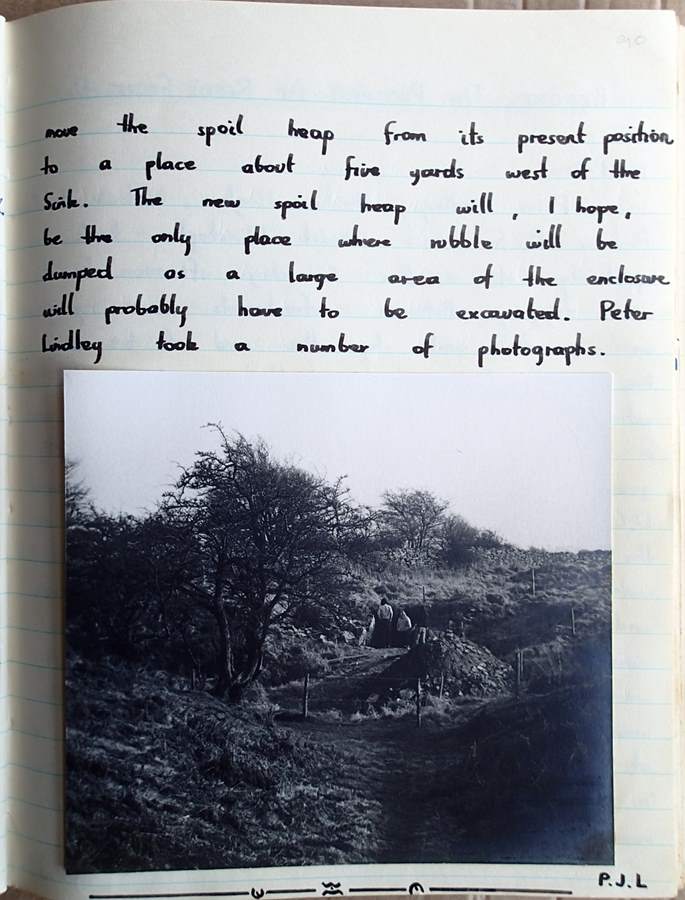 90
move the spoil heap from its present position
to a place about five yards west of the
Sink. The new spoil heap will, I hope,
be the only place where rubble will be
dumped as a large area of the enclosure
will probably have to be excavated. Peter
Lindley took a number of photographs.
P.J.L